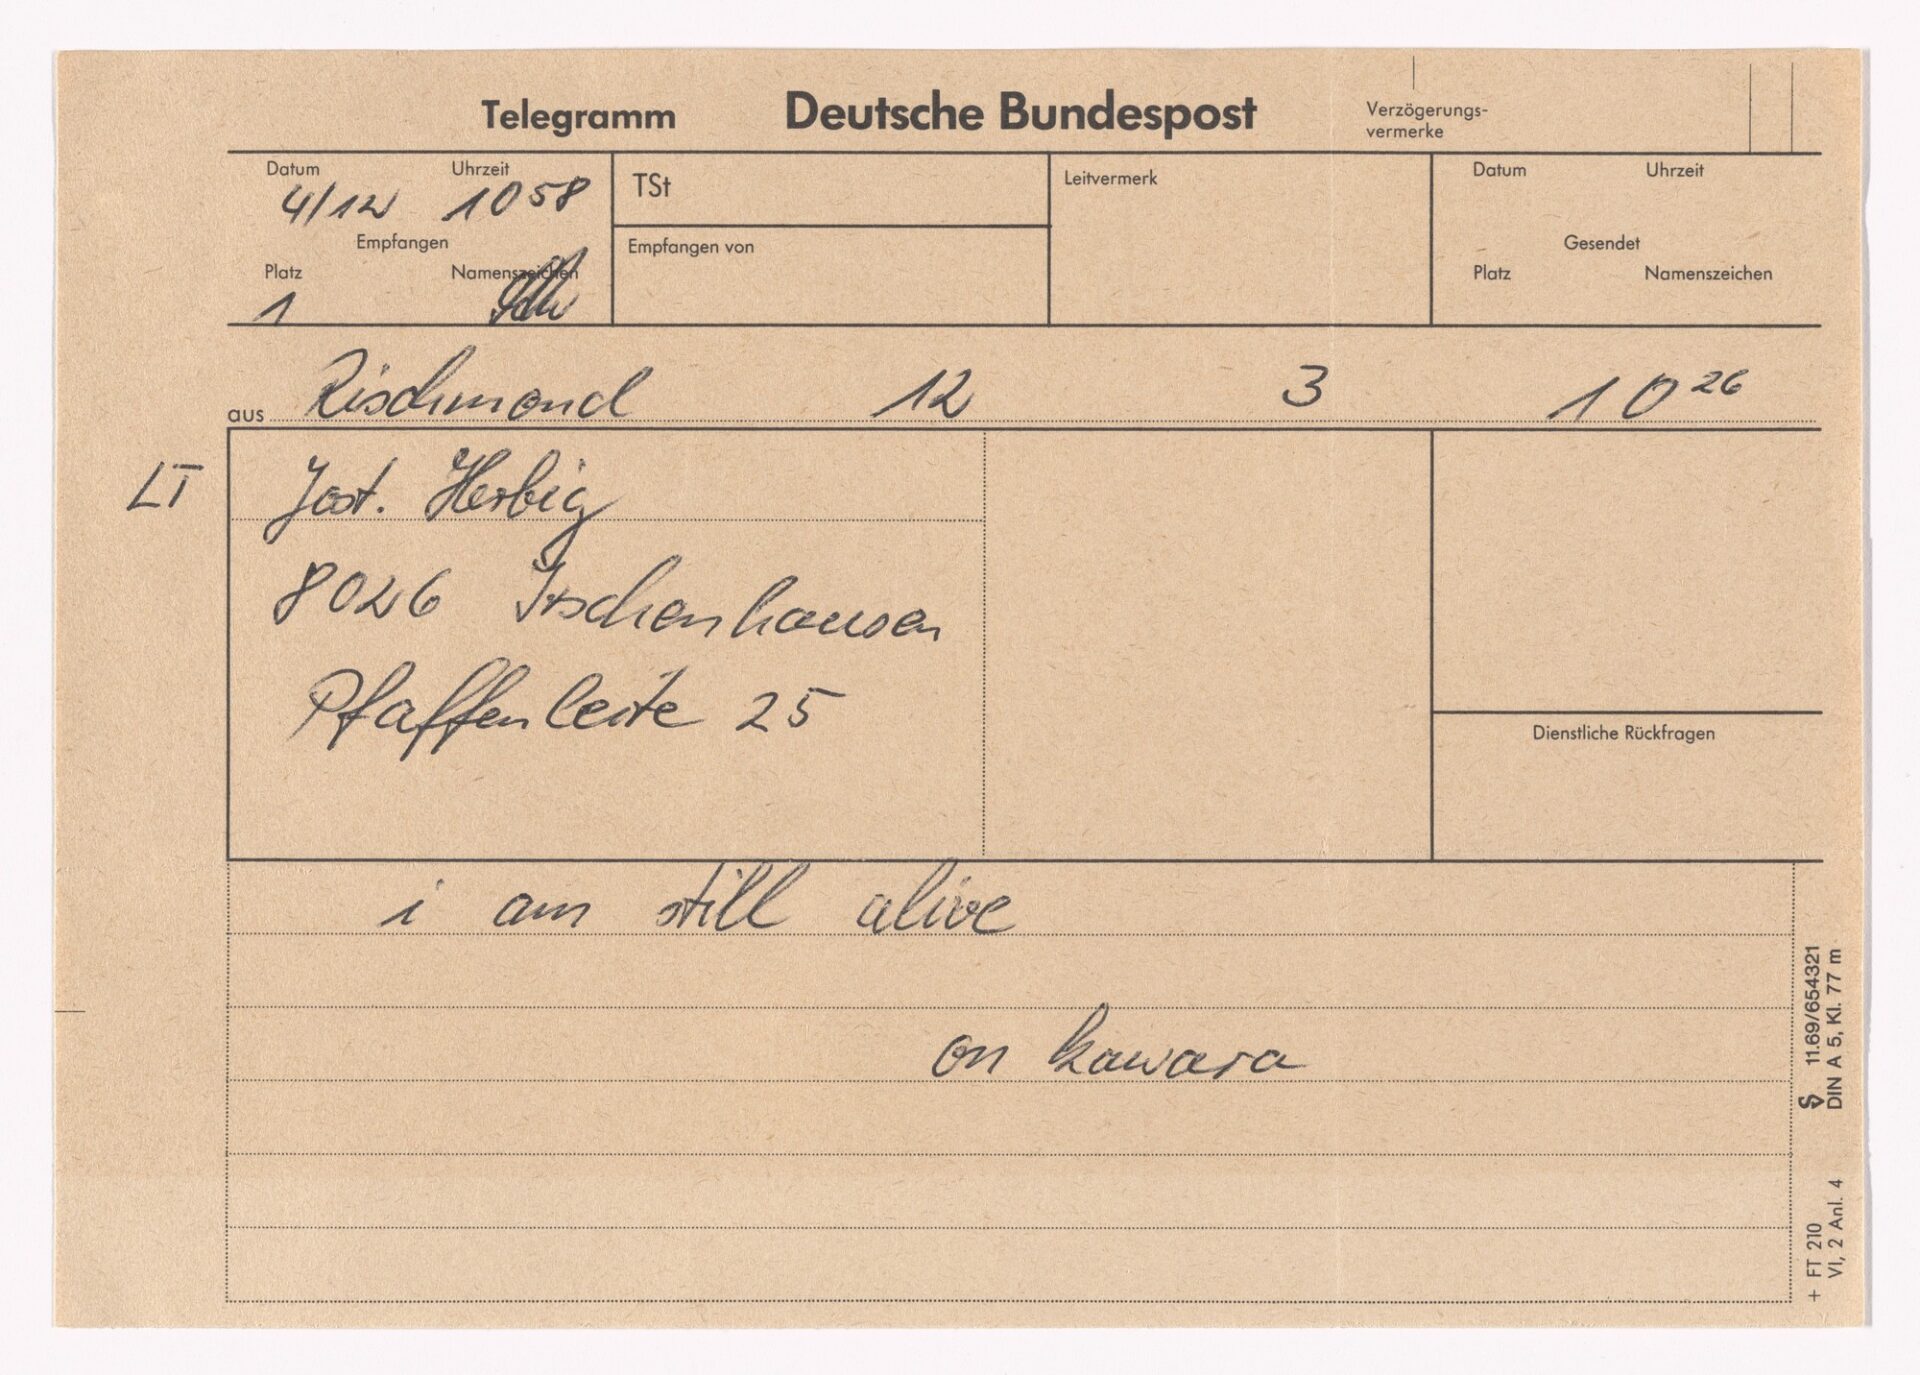 Telegramm Deutsche Bundespost Verzögerungs-
vermerke
Datum Uhrzeit TSt Leitvermerk Datum Uhrzeit
4/12 10 58
Empfangen Empfangen von Gesendet
Platz Namenszeichen Platz Namenszeichen
1
aus Rischmond 12 3 10 26
LT Jost. Herbig
8026 Irschenhausen
Pfaffenleite 25
Dienstliche Rückfragen
i am still alive
on kawara
11.69/654321
DIN A 5, Kl. 77 m
+ FT 210
VI, 2 Anl. 4